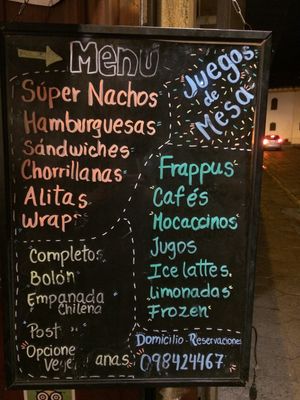 Menú
Súper Nachos
Hamburguesas
Sándwiches
Chorrillanas
Alitas
Wraps
Juegos
de
Mesa
Frappus
Cafés
Mocaccinos
Jugos
Ice lattes
limonadas
Frozen
Completos
Bolón
Empanada
Chilena
Post
Opcione
Vege anas
Domicilio - Reservaciones
098424467